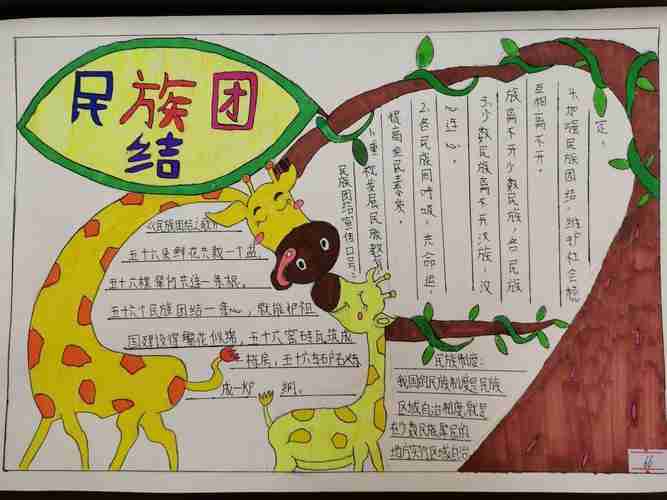 民族团
结
民族团结之歌
五十六朵鲜花共栽一个盆,
五十六棵翠竹共连一条根。
五十六个民族团结一条心,就能把祖
国建设得繁花似锦,五十六窑砖瓦筑成
一栋房,五十六车矿石炼
成一炉 钢。
民族团结宣传口号:
1.重视发展民族教育,
提高全民素质。
2.各民族同呼吸,共命运,
心连心。
3.少数民族离不开汉族,汉
族离不开少数民族,各民族
互相离不开。
4.加强民族团结,维护社会稳
定。
民族制度:
我国的民族制度是民族
区域自治制度,就是
在少数民族聚居的
地方实行区域自治